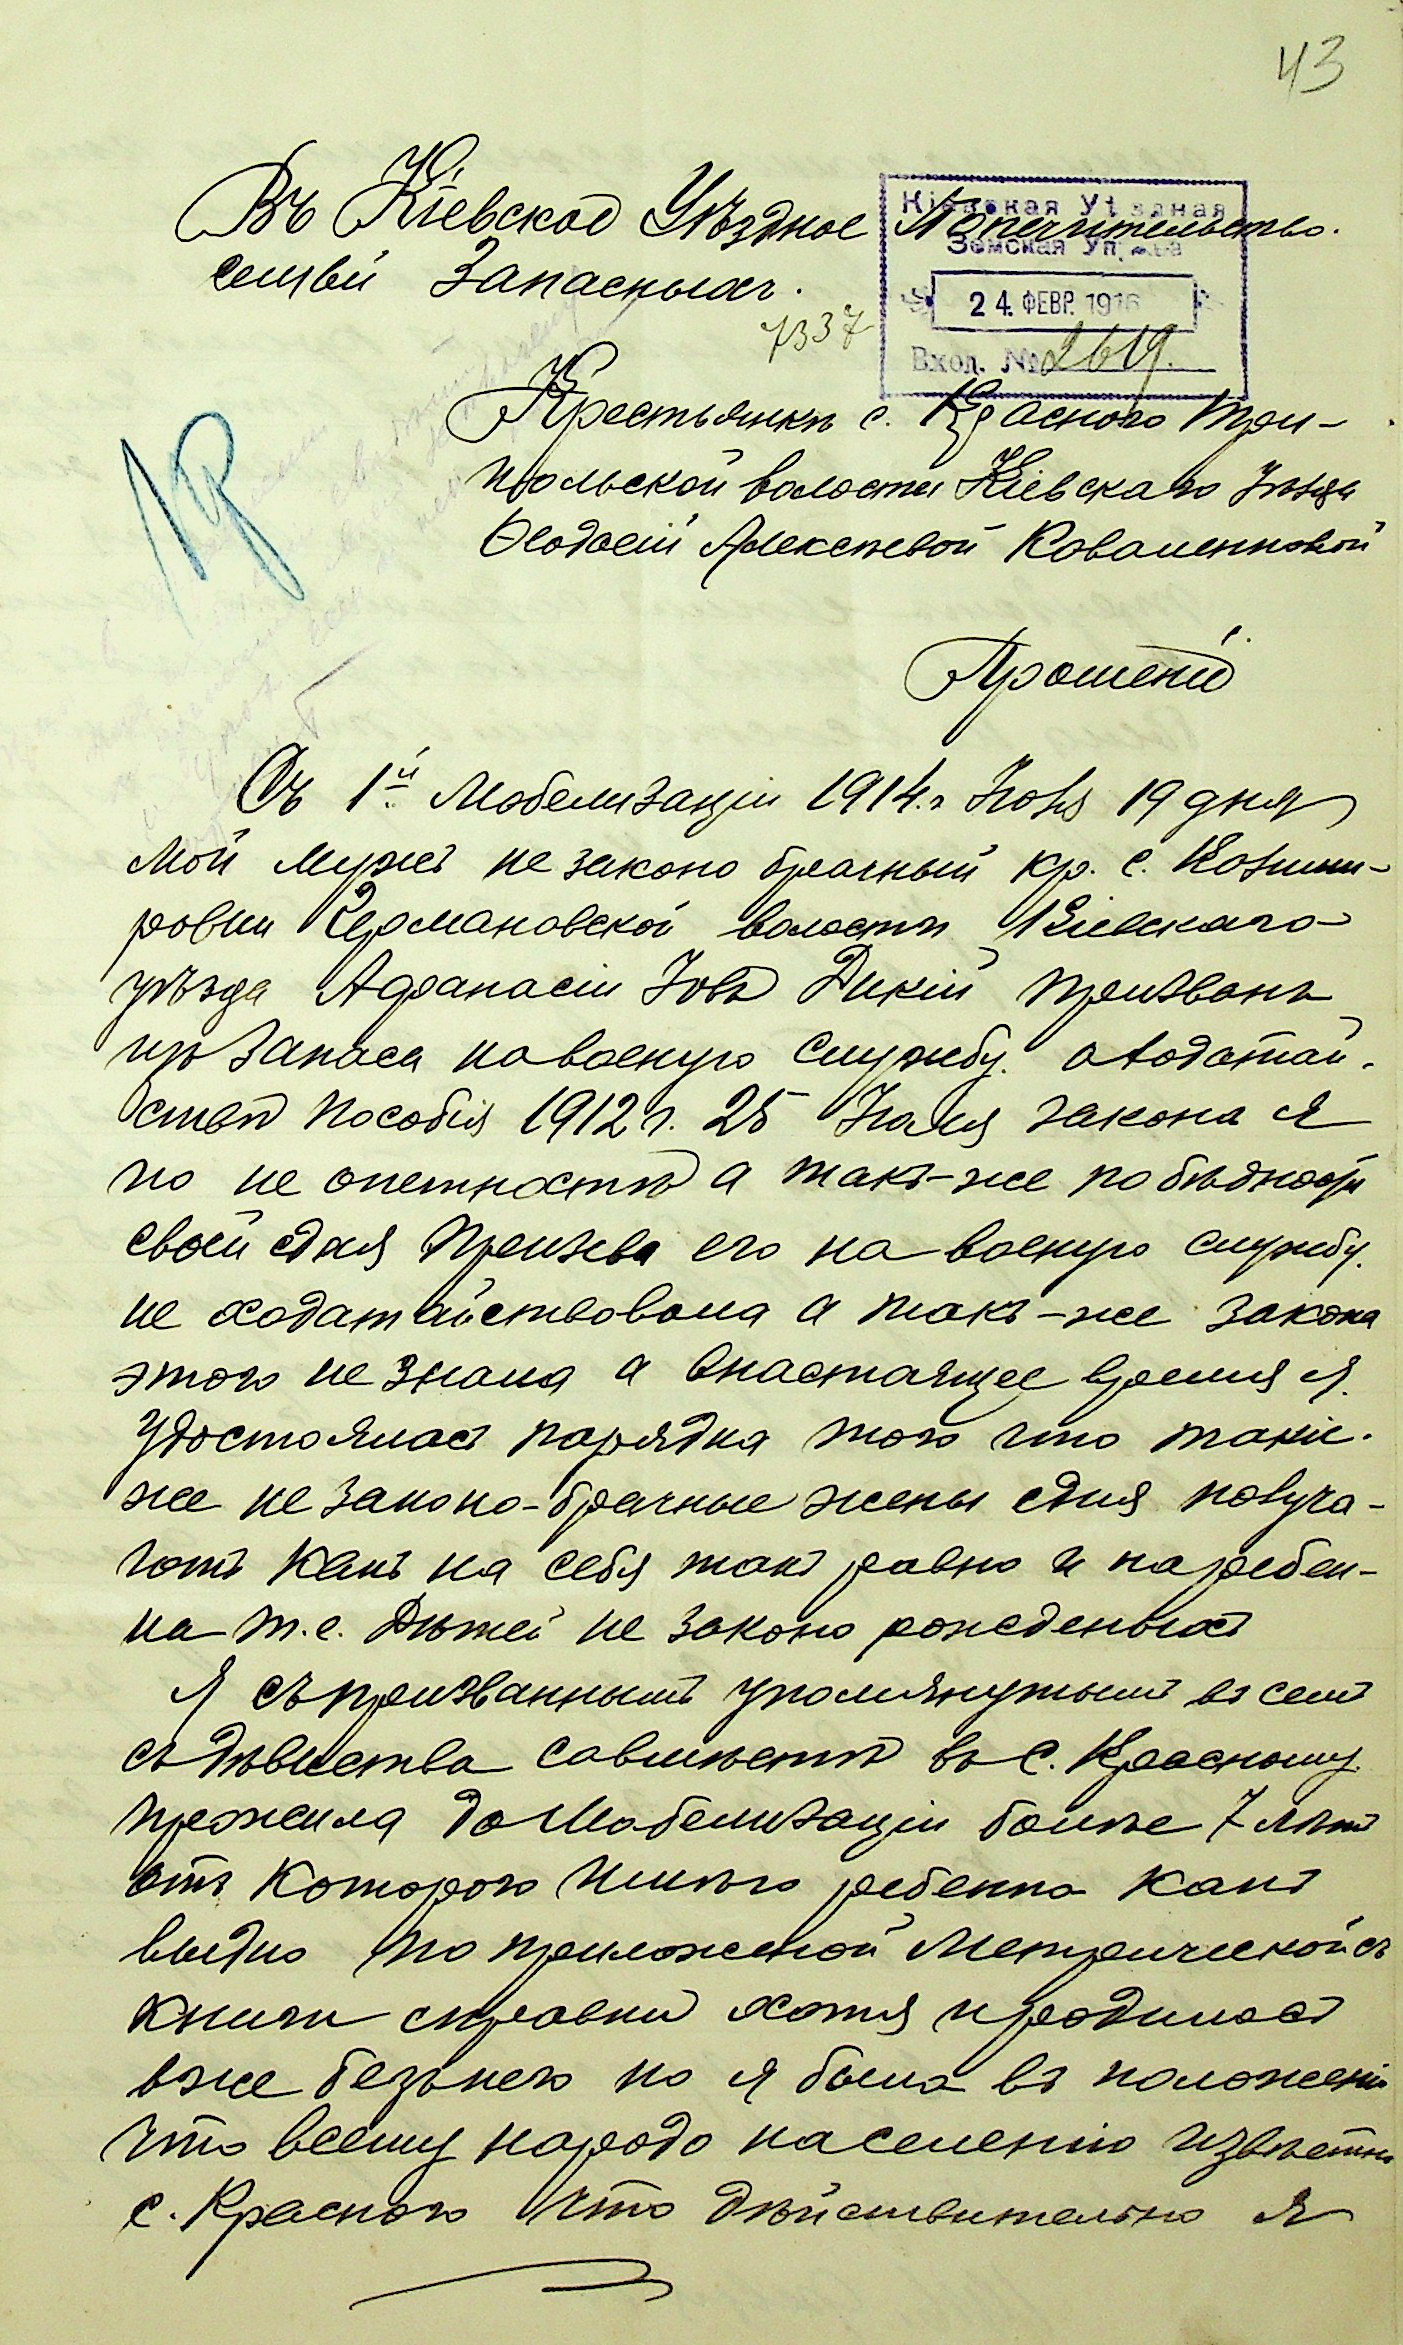 43
Въ Кіевское Уѣздное Попечительство.
семьи Запасныхъ.
Кіевская Уѣздная
Земская Управа
24. ФЕВР. 1916
Вход. № 2619.
7337
Крестьянки с. Красного Три-
польской волости Кіевскаго уѣзда
Ѳеодосіи Алексѣевой Коваленковой
Прошеніе
Съ 1й Мобелизаціи 1914.г Іюля 19 дня
мой мужъ не законо брачный кр. с.
ровки Германовской волости Кіевскаго
уѣзда Афанасій Іовъ Дикій призванъ
изъ Запаса на военую службу. о ходатай-
ствѣ Пособія 1912 г. 25 Іюня закона я
по не опетности а такъ-же по бѣдности
своей для призыва его на военую службу.
не ходатайствовала а такъ-же закона
этого не знала а внастаящее время я
удостоялась парядка того что такіи-
же не законо-брачные жены для получа-
ютъ какъ на себя такъ равно и на ребен-
ка т.е. Дѣтей не законо рожденыхъ
Я съ призваннымъ упомянутымъ въ семъ
съ дѣвства совмѣстѣ въ с. Красному
прожила до Мобелизаціи болѣе 7 лѣтъ
отъ Которого имѣю ребенка какъ
видно по приложеной Метрической съ
книги справки хотя иродилось
вже безънего но я была въ положеніи
что всему народо населенію извѣстно
с. Красного что дѣйствительно я